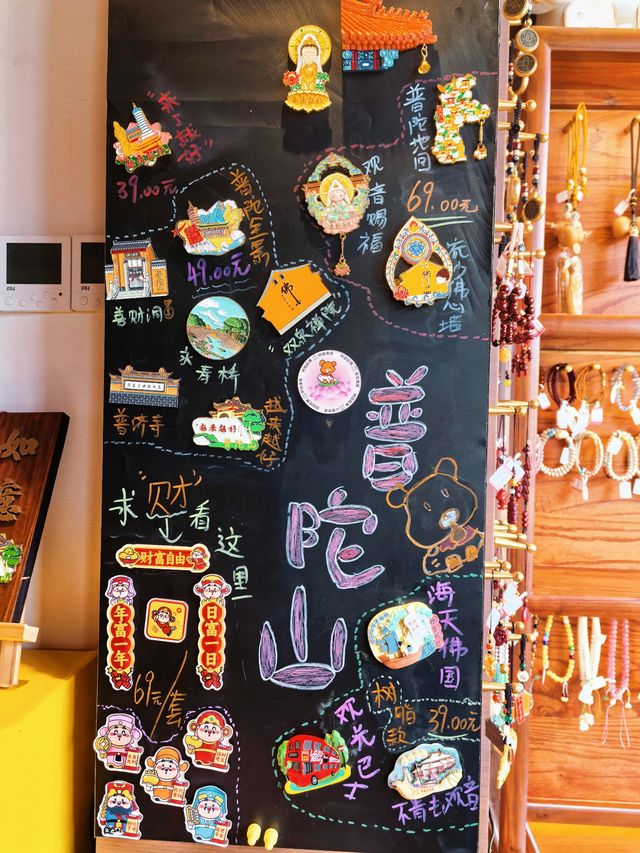 来了就好
39.00元
普陀全景
49.00元
普陀地图
69.00元
观音赐福
流沙佛心墙
善财洞
佛
双泉禅院
来寿桥
普济寺
越来越好
越来越好
普陀山
求"财"看这里
财富自由
年富一年
日富一日
69元/套
海天佛国
树脂款
39.00元
观光巴士
不肯去观音